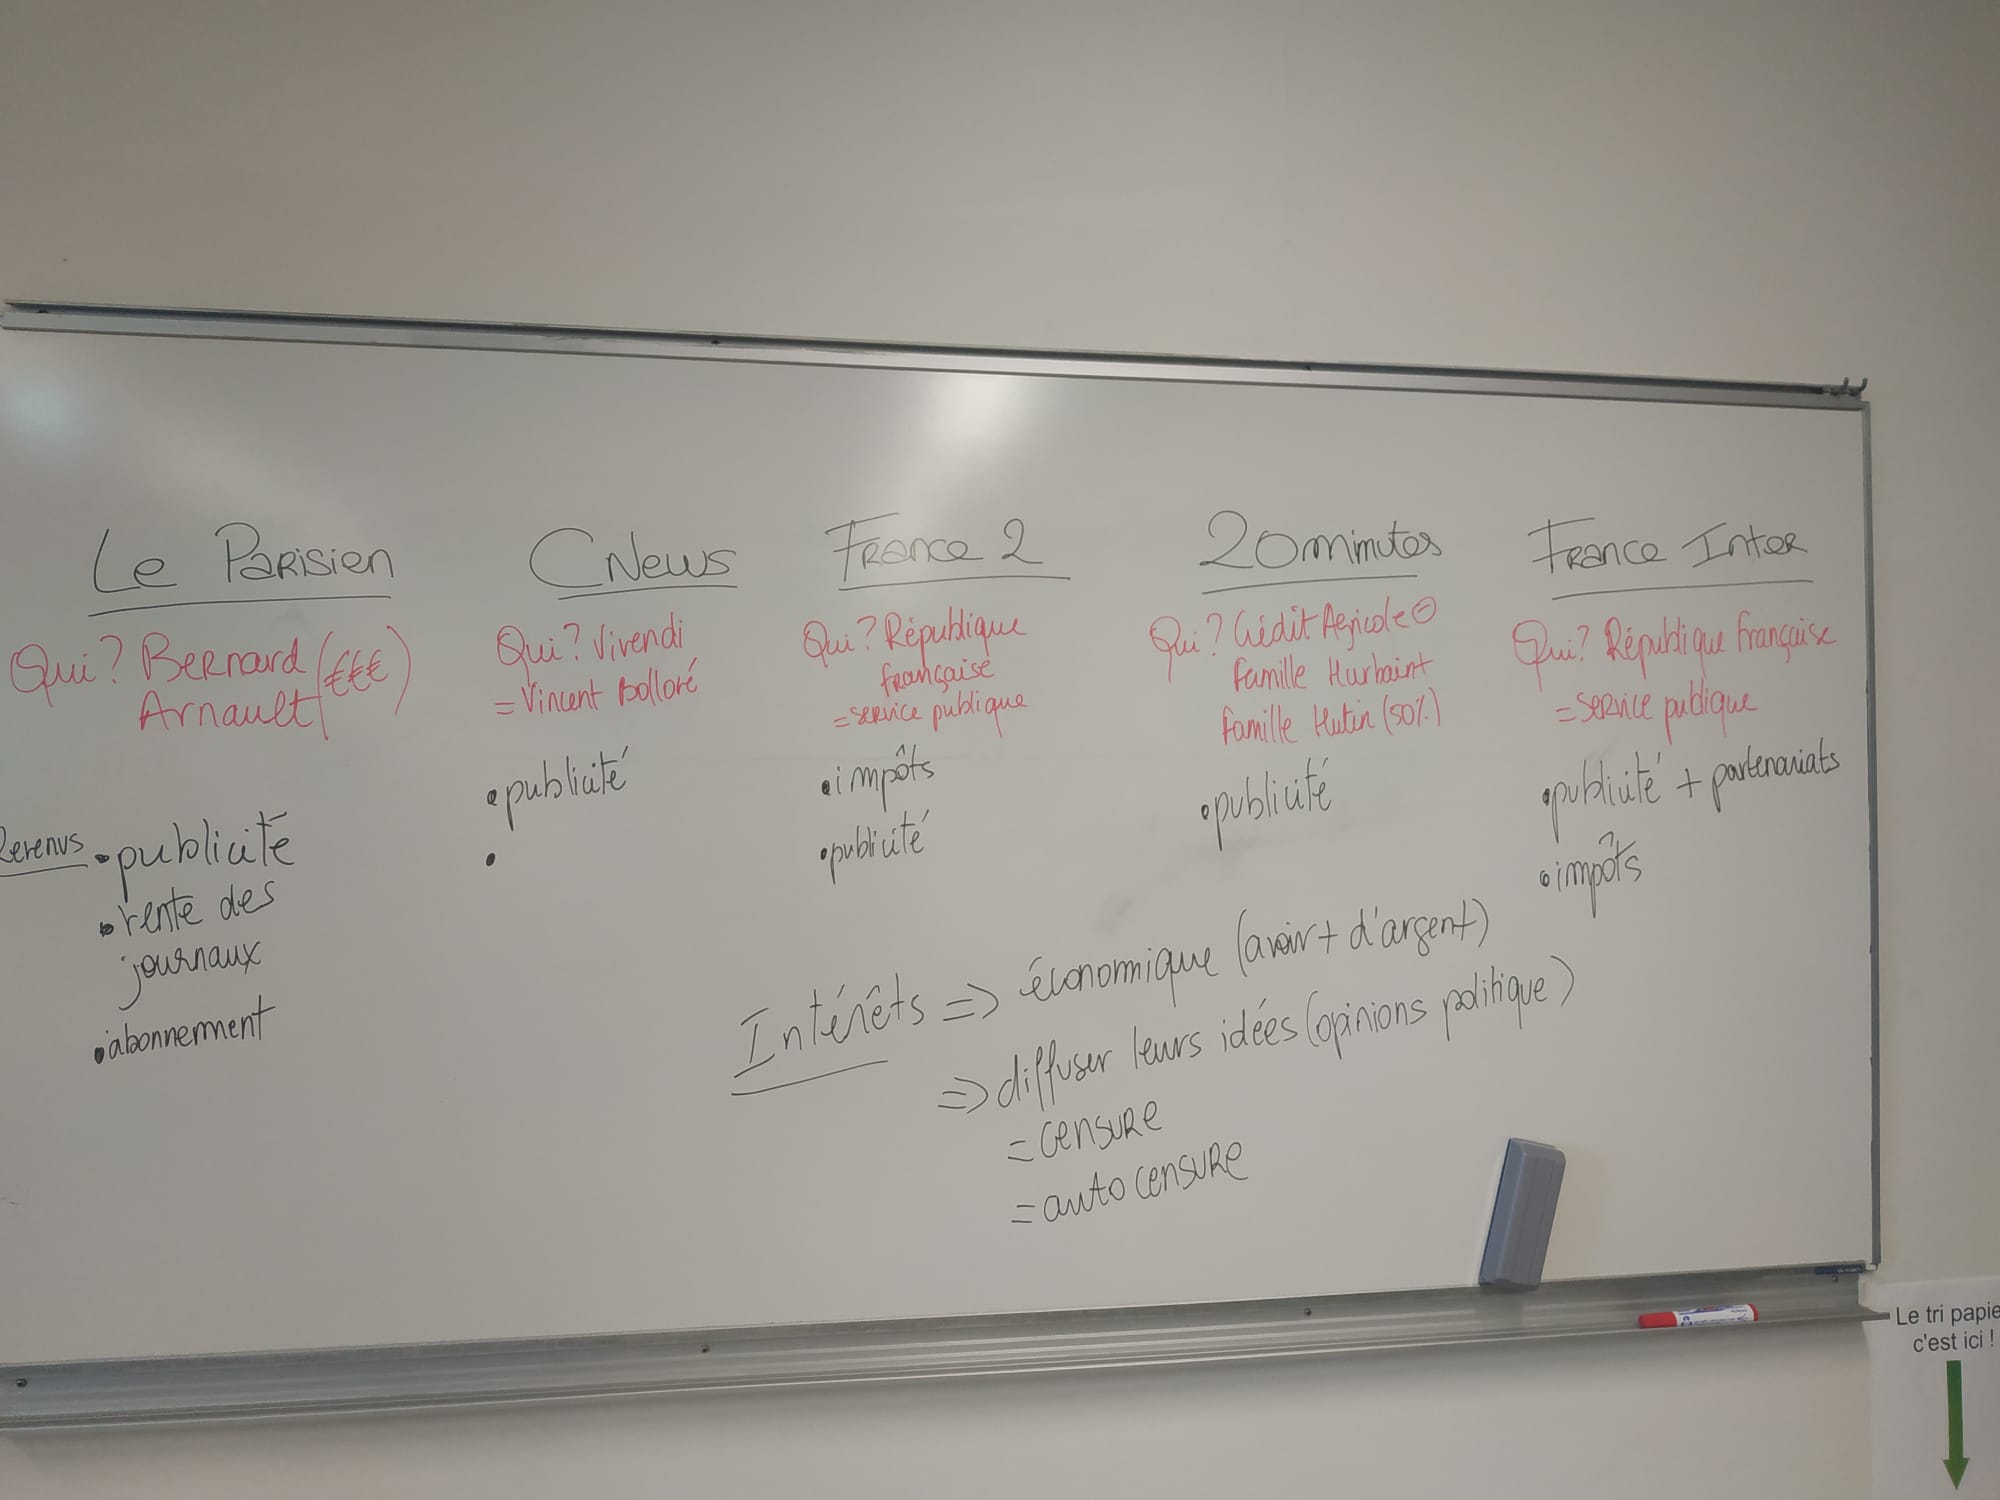 Le Parisien
Qui? Bernard (€€€)
Arnault
Revenus
• publicité
• vente des
journaux
• abonnement
CNews
Qui? Vivendi
= Vincent Bolloré
• publicité
•
France 2
Qui? République
française
= service publique
• impôts
• publicité
20 minutes
Qui? Crédit Agricole
famille Hurbaint
famille Hutin (50%)
• publicité
France Inter
Qui? République française
= service publique
• publicité + partenariats
• impôts
Intérêts => économique (avoir + d'argent)
=> diffuser leurs idées (opinions politique)
= censure
= auto censure
Le tri papie
c'est ici !